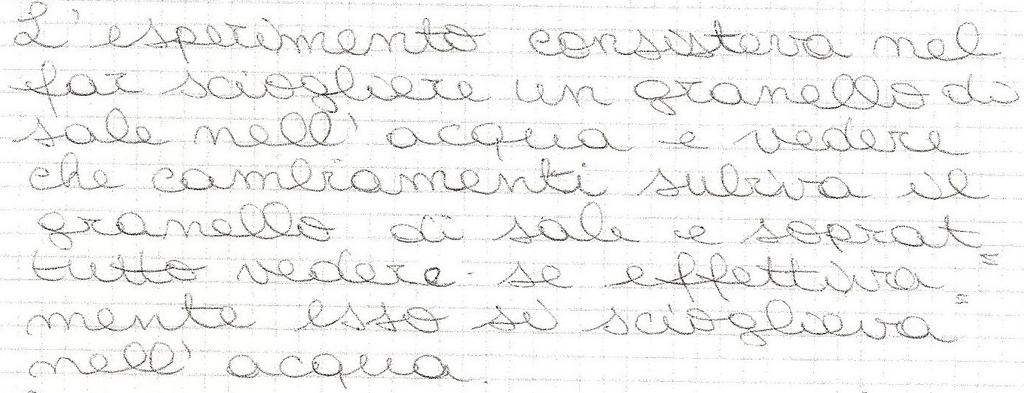 L'esperimento consisteva nel
far sciogliere un granello di
sale nell'acqua e vedere
che cambiamenti subiva il
granello di sale e soprat=
tutto vedere se effettiva=
mente esso si scioglieva
nell'acqua.